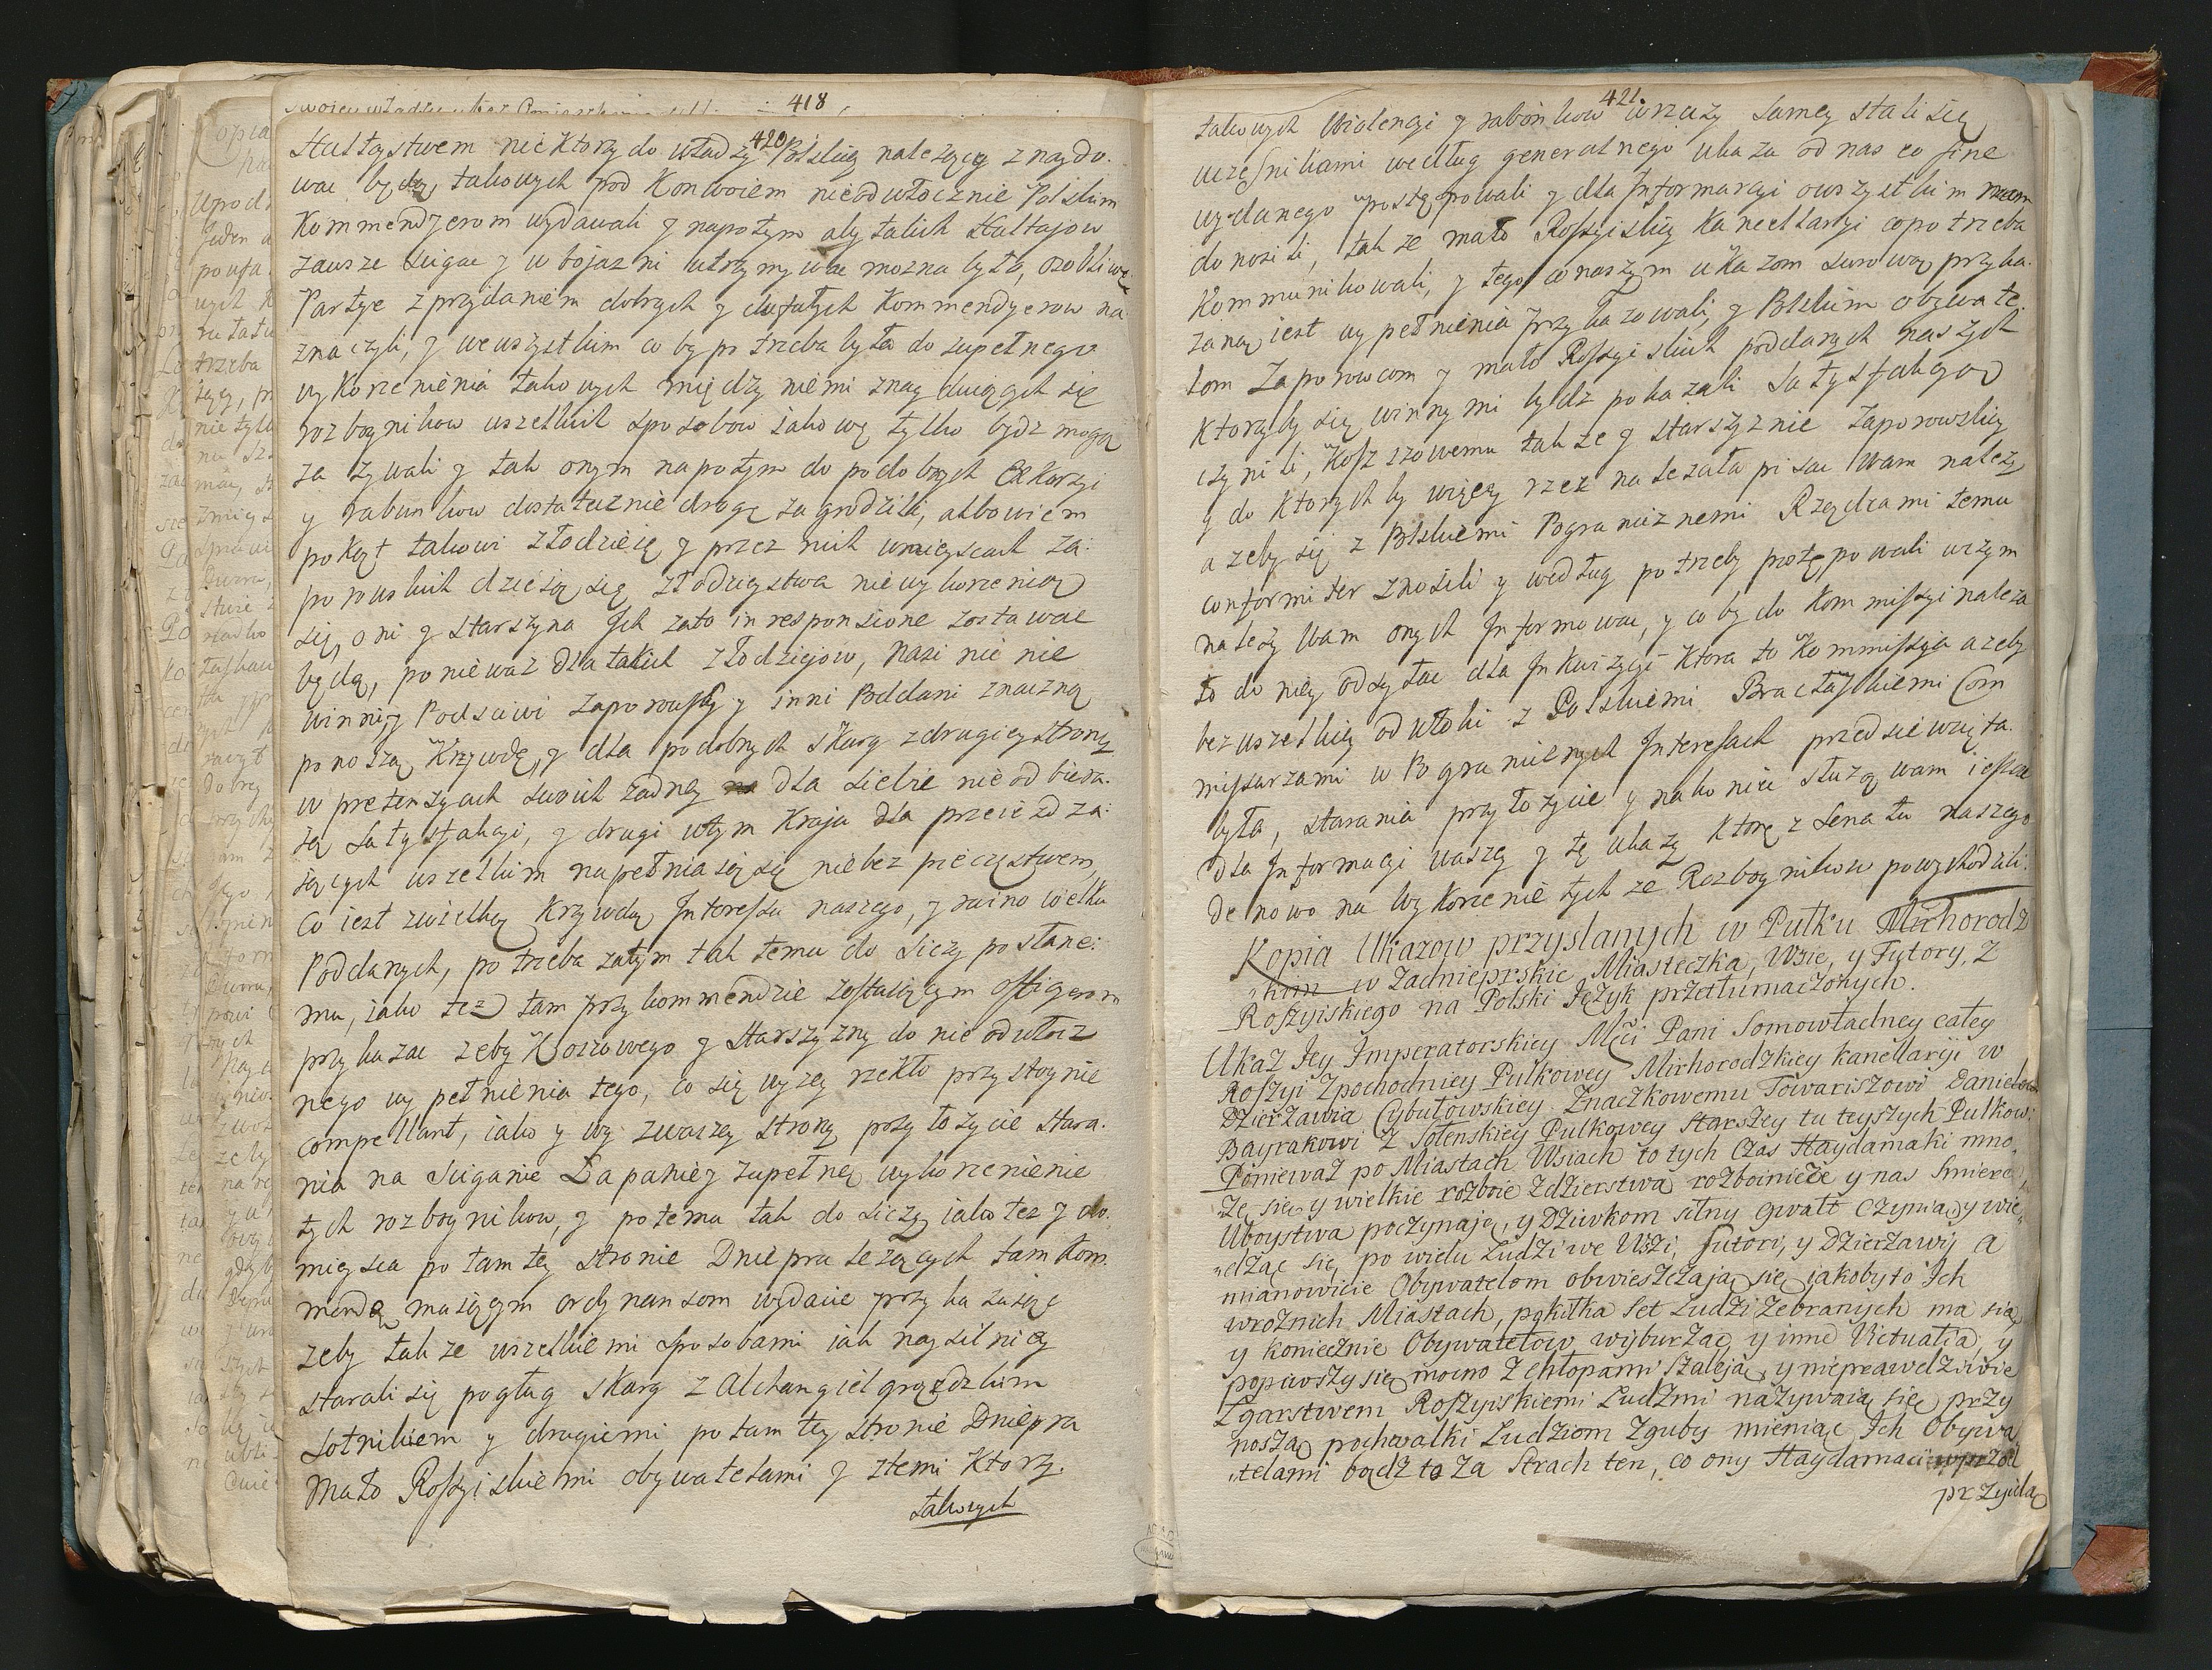 418
420
Hultaystwem nie Ktorzy do władzy Polskiey należący znaydo.
wac będą, takowych pod Konwoiem nieodwłocznie Polskim
Kommendyerom wydawali y napotym aby takich Hultajow
zawsze scigac y w bojazni utrzymywac mozna było, osobliwe
Partye z przydaniem dobrych y dufałych Kommendyerow na
znaczyli, y we wszystkim co by potrzeba było do zupełnego
wykorzenienia takowych między niemi znayduiących się
rozboynikow wszelkich sposobow iakowe tylko bydz mogą
zazywali y tak onym napotym do podobnych Exkursyi
y rabunkow dostatecznie drogę zagrodzili, albowiem
pokąt takowi złodzieie y przez nich w mieyscach Za:
porowskich dzieiące się złodzieystwa nie wykorzenią
się, oni y starszyna Ich zato in responsione zostawac
będą, poniewaz dla takich złodziejow, nasi nie nie
winni Podsciwi zaporoscy y inni Poddani znaczną
ponoszą Krzywdę, y dla podobnych skarg z drugiey strony
w pretensyach swoich zadney dla siebie nie odbiera:
ią satysfakcyi, y drugi w tym Kraju dla przeieżdza:
iących wszelkim napełniaią się niebezpieczęstwem,
Co iest z wielką Krzywdą Interessu naszego, y ruiną wielką
Poddanych, potrzeba zatym tak temu do Siczy posłane:
mu, iako tez tam przy kommendzie zostaiącym Officerom
przykazac zeby Koszowego y Starszyznę do nieodwłocz
nego wypełnienia tego, co się wyzey rzekło przystoynie
compellant, iako y wy z waszey strony przyłozycie stara.
nia na sciganie Łapanie y zupełne wykorzenienie
tych rozboynikow, y potemu tak do Siczy iako tez y do
mieysca po tamtey stronie Dniepra lezących tam kom.
mendę maiącym ordynansom wydacie przykazuiąc
zeby takze wszelkiemi sposobami iak naysilniey
starali się podług skarg z Alchangielgrodzkim
sotnikiem y drugiemi po tamtey stronie Dniepra
Mało Rossyiskiemi obywatelami y ztemi Ktorzy.
takowych
421.
takowych Violencyi y rabonkow w rzaczy samey stali się
uczesnikami według generalnego ukazu od nas eo fine
wydanego postępowali y dla Informacyi o wszystkim nam
donosili, takze mało Rossyiskiey Kancellaryi co potrzeba
Kommunikowali, y tego co naszym ukazom surowo przyka.
zano iest wypełnienia przykazowali, y Polskim obywate
lom Zaporowcom y mało Rossyiskich poddanych naszych
Ktorzyby się winnymi bydz pokazali Satysfakcyą
czynili, Koszowemu takze y starszyznie zaporowskiey
y do Ktorych by więcey rzecz nalezała pisac Wam nalezy
a zeby się z Polskiemi Pogranicznemi Rządcami temu
conformiter znosili y według potrzeby postępowali w czym
nalezy Wam onych Informowac, y co by do Kommissyi nalezało
to do niey odsyłac dla Inkwizycyi Ktora to Kommissyia azeby
bez wszelkiey odwłoki z Polskiemi Bracławskiemi Com
missarzami w Pogranicznych Interesach przedsiewzięta
była, starania przyłozycie y nakoniec słuzą wam ieszcze
dla Informacyi waszey y te ukazy Ktore z Senatu naszego
de novo na wykorzenie tych ze Rozboynikow powychodzili.
Kopia Ukazow przyslanych w Pułku Mirhorodz
kim w Zadnieprskie Miasteczka, Wsie, y Futory, z
Roszyiskiego na Polski Język przetłumaczonych.
Ukaz Jey Imperatorskiey Mći Pani Somowładney całey
Roszyi Zpochodniey Pulkowey Mirhorodzkiey kancellaryi w
Dzierzawia Cybulowskiey Znaczkowemu Towariszowi Danielowi
Bayrakowi z Sotenskiey Pulkowey Starszey tu teyszych Pulkow:
Poniewaz po Miastach Wsiach to tych Czas Haydamaki mno
żę się y wielkie rozboie zdzierstwa rozboiniecze y nas Smierc,
Uboystwa poczynaję, y Dziwkom silny gwałt czynią y wie„
„dząc się po wielu Ludzi we Wsi, Futori, y Dzierzawy a
mianowicie Obywatelom obwieszczają się jakoby to Ich
wroznich Miastach, pokilka set Ludzi Zebranych ma się
y koniecznie Obywatelow wyburzac y inne Victualia, y
popiwszy się mocno z chłopami Szaleją, y nieprawdziwie
Zgarstwem Roszyiskiemi Ludzmi nazywaią się przy
noszą pochwałki Ludziom Zguby mieniąc Ich Obywa
„telami bądz to za Strach ten, co ony Haydamacii wprzod
przyidą